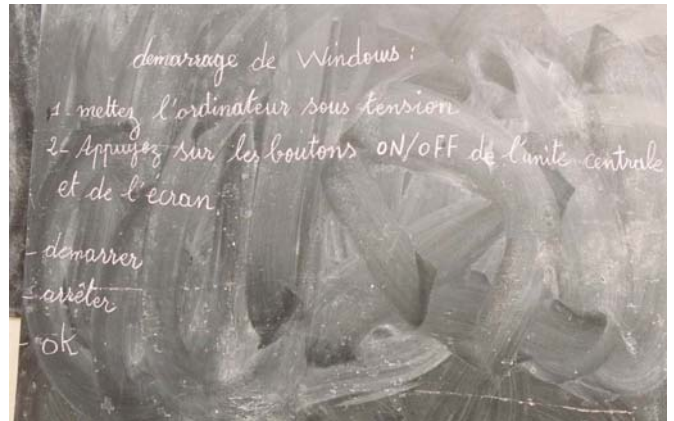 demarrage de Windows :
1_ mettez l'ordinateur sous tension
2_ Appuyez sur les boutons ON/OFF de l'unite centrale
et de l'écran
- demarrer
- arrêter
- ok